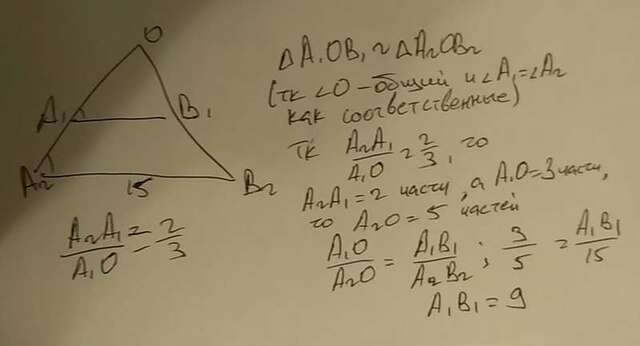 O
A₁
B₁
A₂
15
B₂
A₂A₁/A₁O = 2/3
Δ A₁OB₁ ~ Δ A₂OB₂
(тк ∠O - общий и ∠A₁=∠A₂
как соответственные)
тк A₂A₁/A₁O = 2/3, то
A₂A₁ = 2 части, а A₁O = 3 части,
то A₂O = 5 частей
A₁O/A₂O = A₁B₁/A₂B₂ ; 3/5 = A₁B₁/15
A₁B₁ = 9